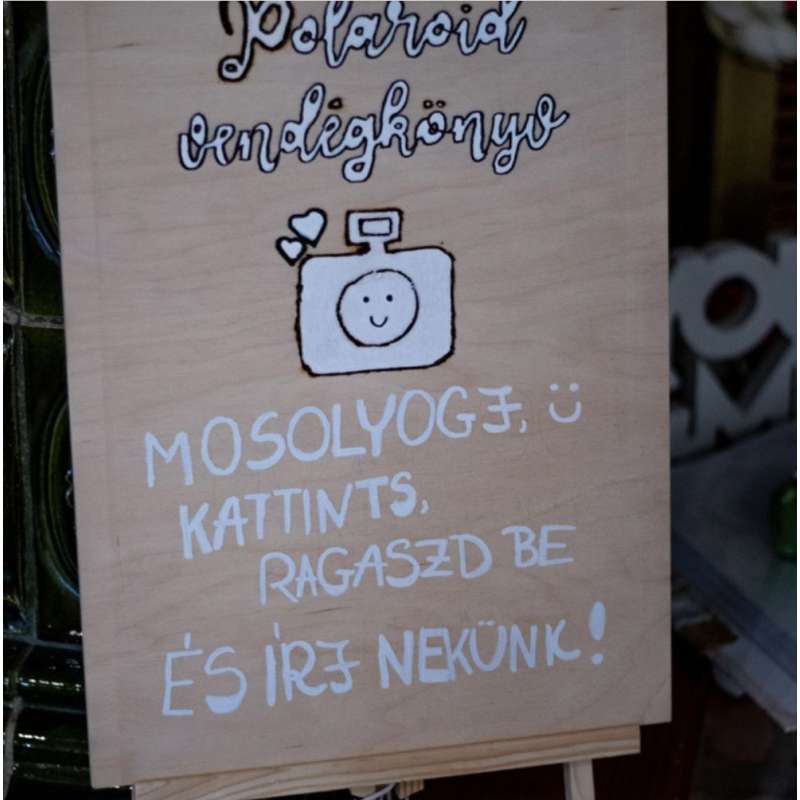 Polaroid
vendégkönyv
MOSOLYOGJ, Ü
KATTINTS,
RAGASZD BE
ÉS ÍRJ NEKÜNK!